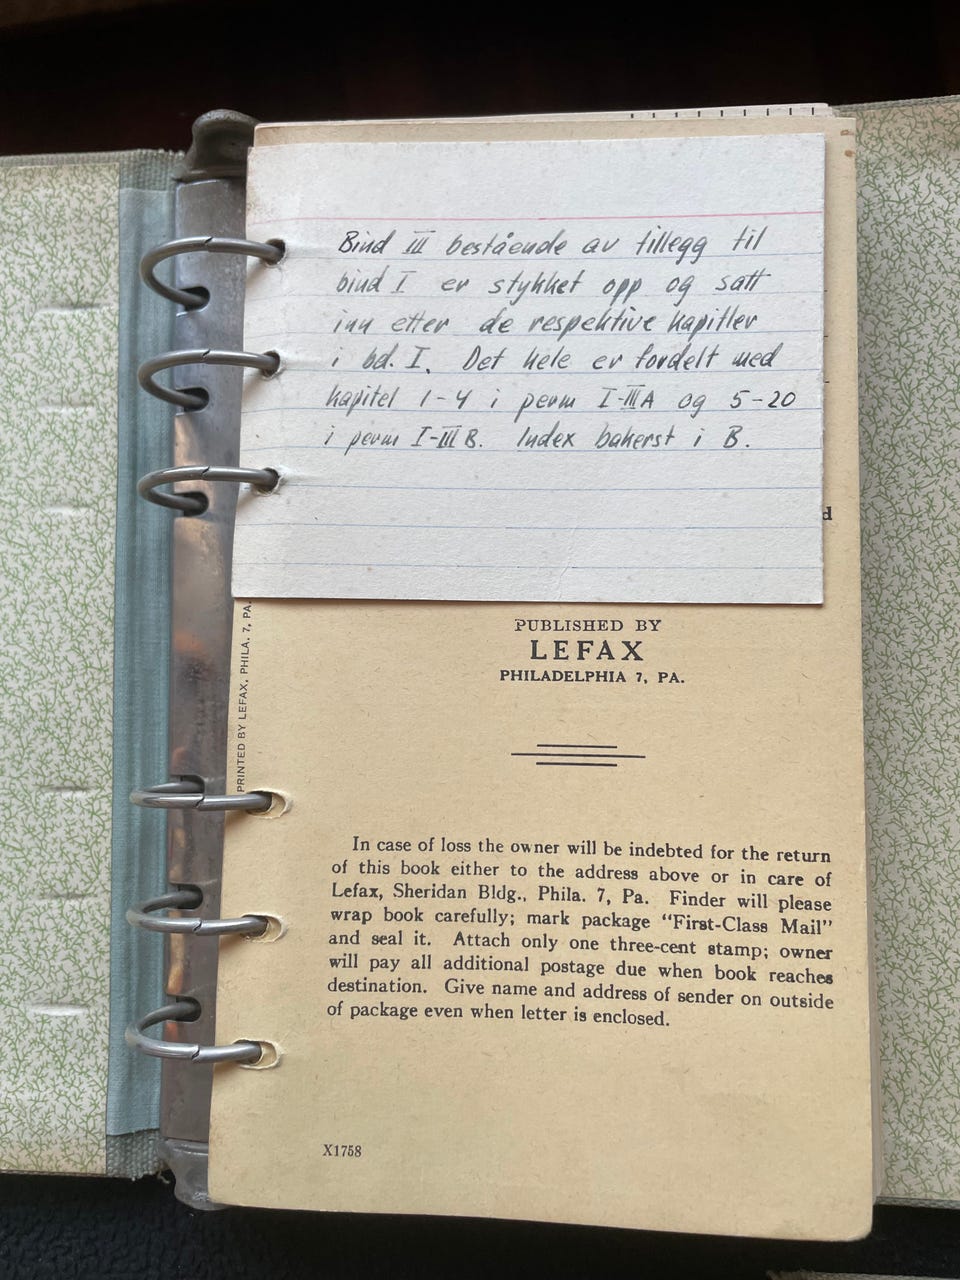 Bind III bestående av tillegg til
bind I er stykket opp og satt
inn etter de respektive kapitler
i bd. I. Det hele er fordelt med
kapitel 1-4 i perm I-III A og 5-20
i perm I-III B. Index bakerst i B.
d
PRINTED BY LEFAX, PHILA. 7, PA.
PUBLISHED BY
LEFAX
PHILADELPHIA 7, PA.
In case of loss the owner will be indebted for the return
of this book either to the address above or in care of
Lefax, Sheridan Bldg., Phila. 7, Pa. Finder will please
wrap book carefully; mark package "First-Class Mail"
and seal it. Attach only one three-cent stamp; owner
will pay all additional postage due when book reaches
destination. Give name and address of sender on outside
of package even when letter is enclosed.
X1758